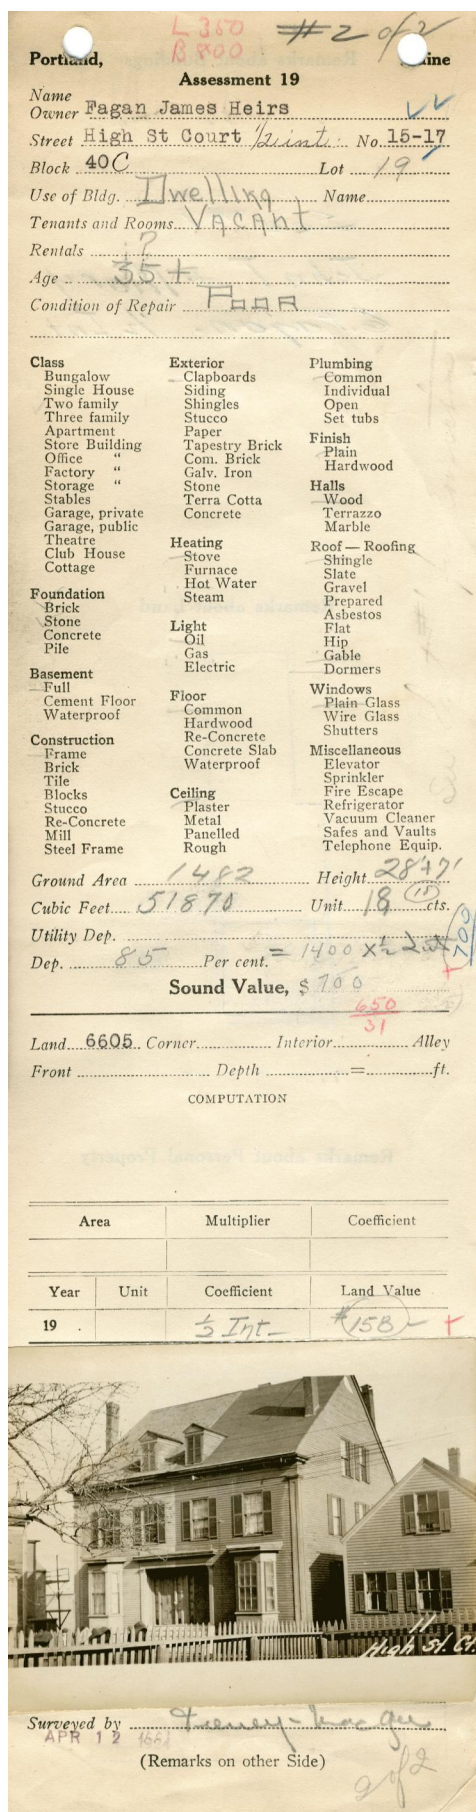 L 350
B 800
#2 of 2
Portland, Maine
Assessment 19
Name
Owner Fagan James Heirs
Street High St Court 1/2 int. No. 15-17
Block 40C Lot 19
Use of Bldg. Dwelling Name
Tenants and Rooms VACANT
Rentals ?
Age 35+
Condition of Repair Poor
Class
Bungalow
Single House
Two family
Three family
Apartment
Store Building
Office "
Factory "
Storage "
Stables
Garage, private
Garage, public
Theatre
Club House
Cottage
Foundation
Brick
Stone
Concrete
Pile
Basement
Full
Cement Floor
Waterproof
Construction
Frame
Brick
Tile
Blocks
Stucco
Re-Concrete
Mill
Steel Frame
Exterior
Clapboards
Siding
Shingles
Stucco
Paper
Tapestry Brick
Com. Brick
Galv. Iron
Stone
Terra Cotta
Concrete
Heating
Stove
Furnace
Hot Water
Steam
Light
Oil
Gas
Electric
Floor
Common
Hardwood
Re-Concrete
Concrete Slab
Waterproof
Ceiling
Plaster
Metal
Panelled
Rough
Plumbing
Common
Individual
Open
Set tubs
Finish
Plain
Hardwood
Halls
Wood
Terrazzo
Marble
Roof — Roofing
Shingle
Slate
Gravel
Prepared
Asbestos
Flat
Hip
Gable
Dormers
Windows
Plain Glass
Wire Glass
Shutters
Miscellaneous
Elevator
Sprinkler
Fire Escape
Refrigerator
Vacuum Cleaner
Safes and Vaults
Telephone Equip.
Ground Area 1482 Height 28'+7'
Cubic Feet 51870 Unit 18 cts.
Utility Dep.
Dep. 85 Per cent. = 1400 x 1/2 Int
700
Sound Value, $ 700
650
31
Land 6605 Corner Interior Alley
Front Depth = ft.
COMPUTATION
Area Multiplier Coefficient
Year Unit Coefficient Land Value
19 1/2 Int- #15B - +
11
High St. Ct.
Surveyed by
APR 12
(Remarks on other Side)
2 of 2